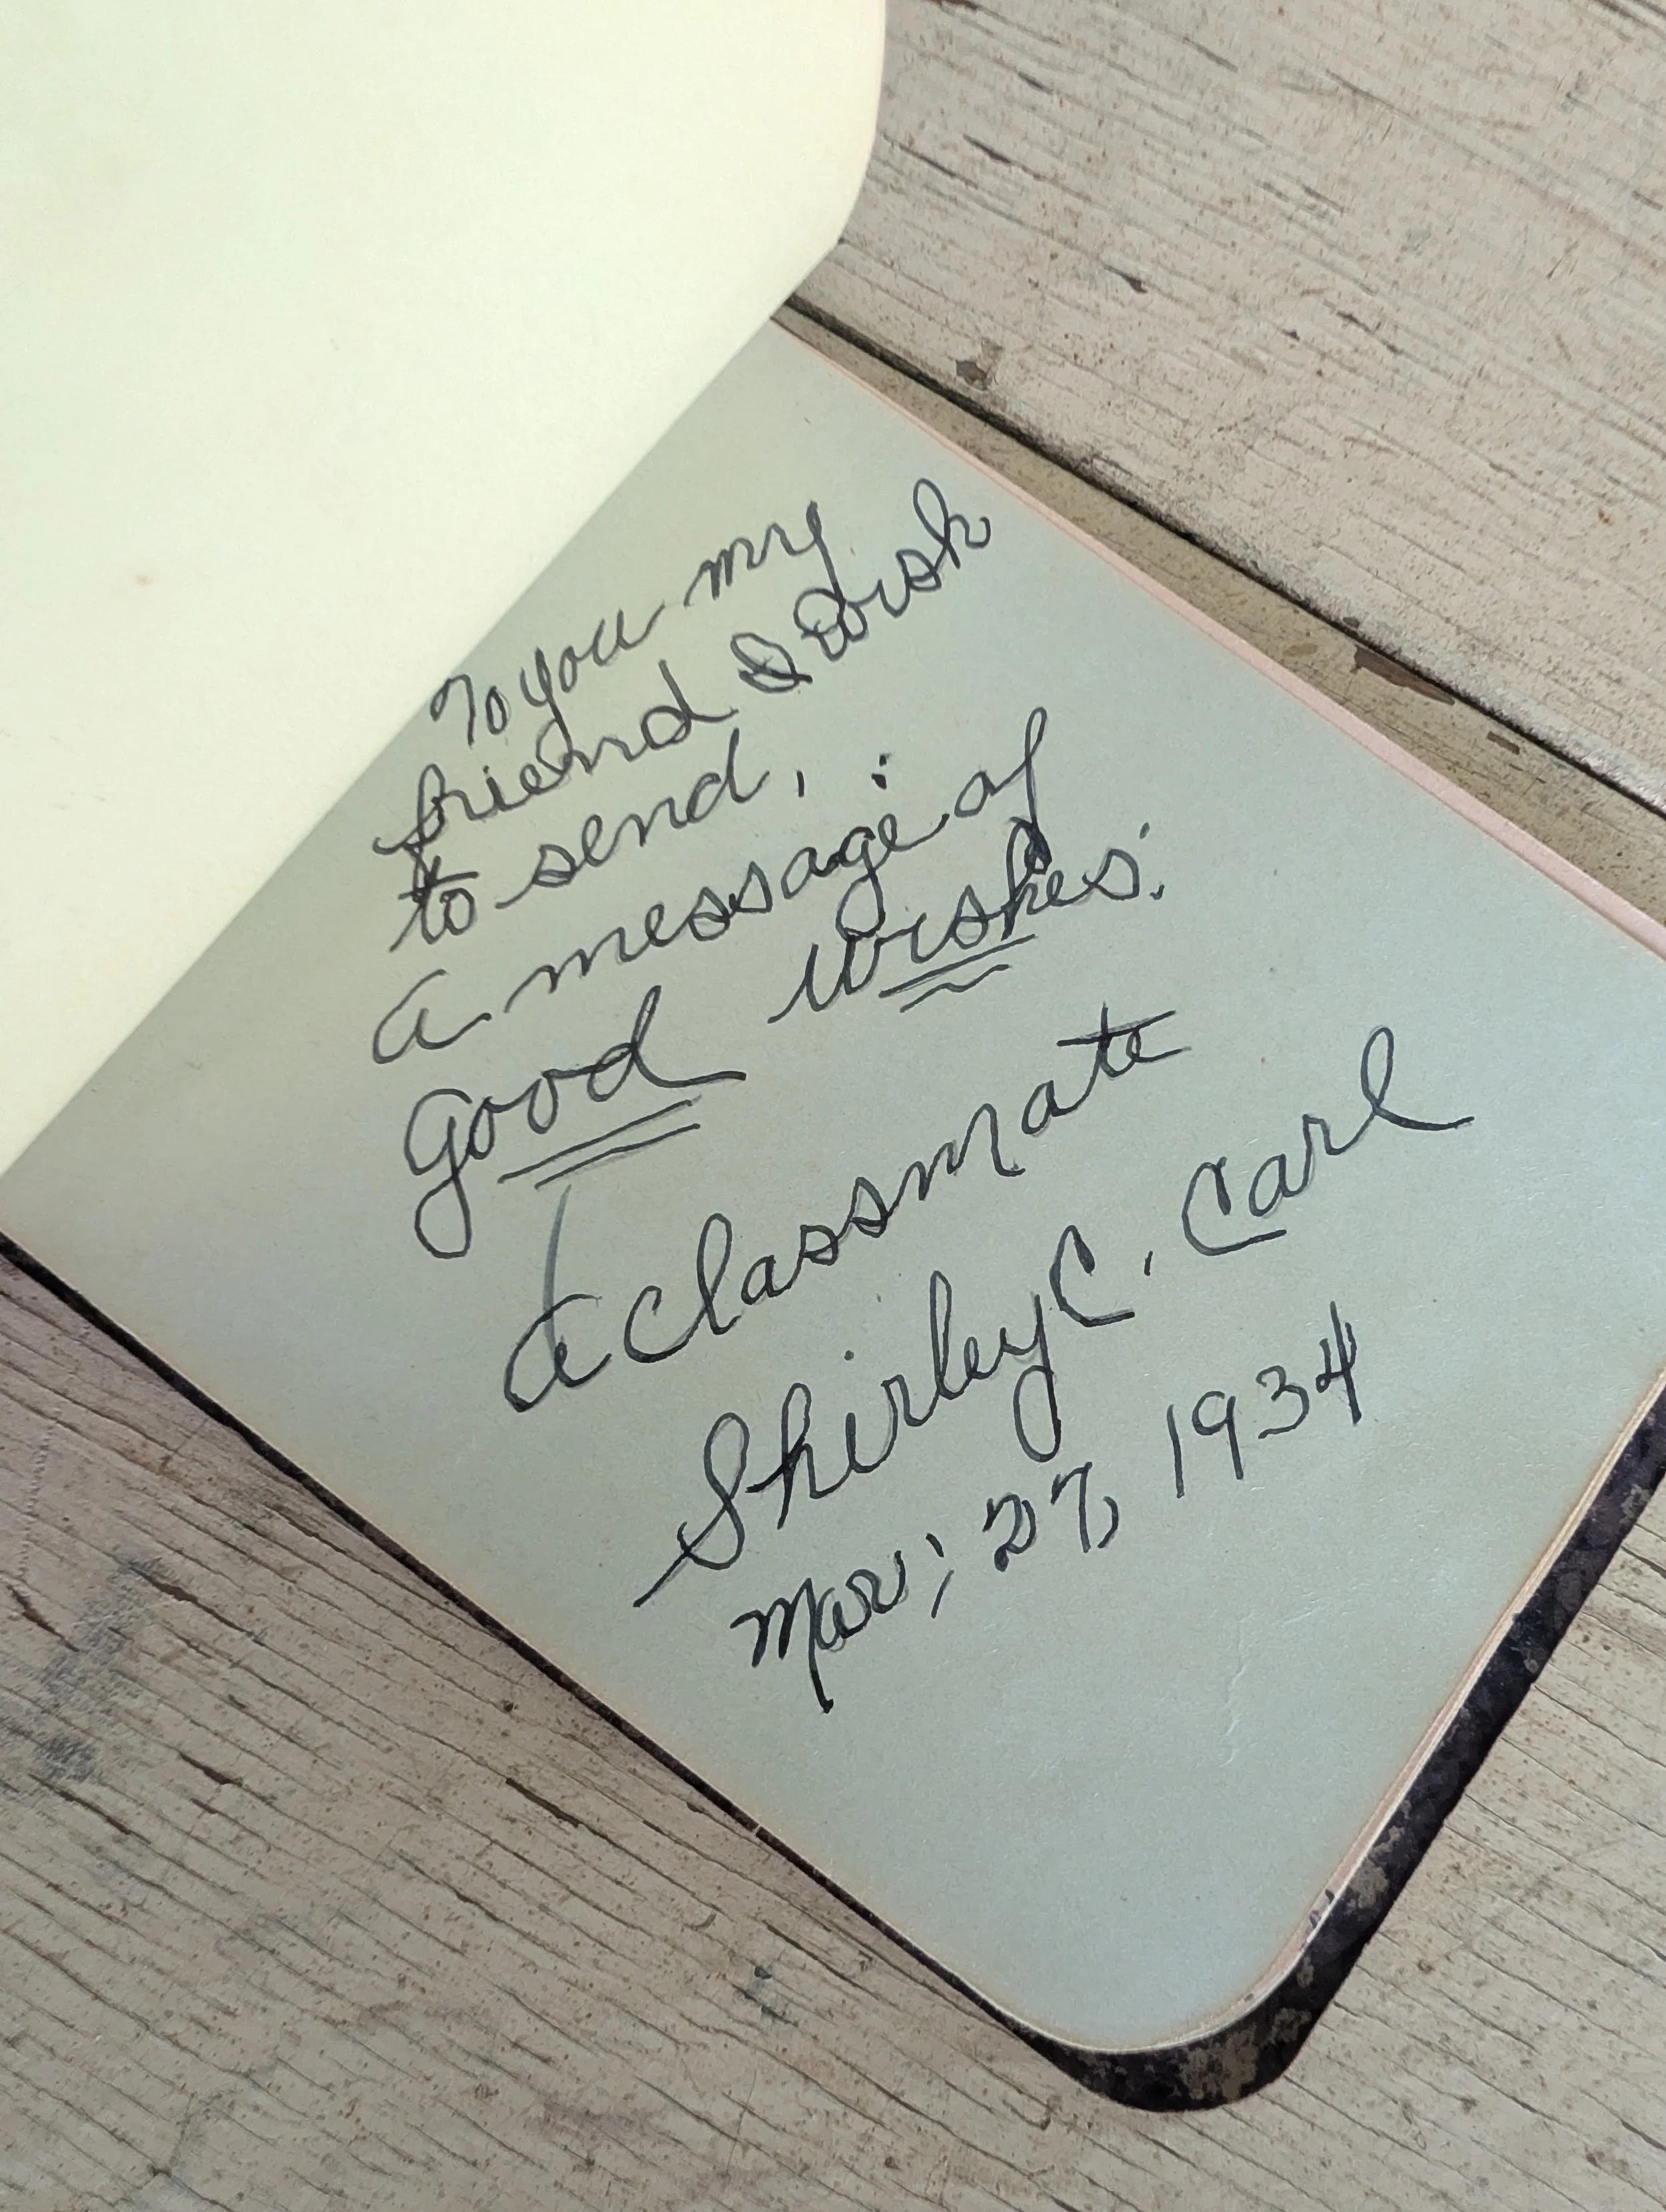 To you my
friend I wish
to send,
a message of
good wishes.
a classmate
Shirley C. Carl
Mar; 27, 1934